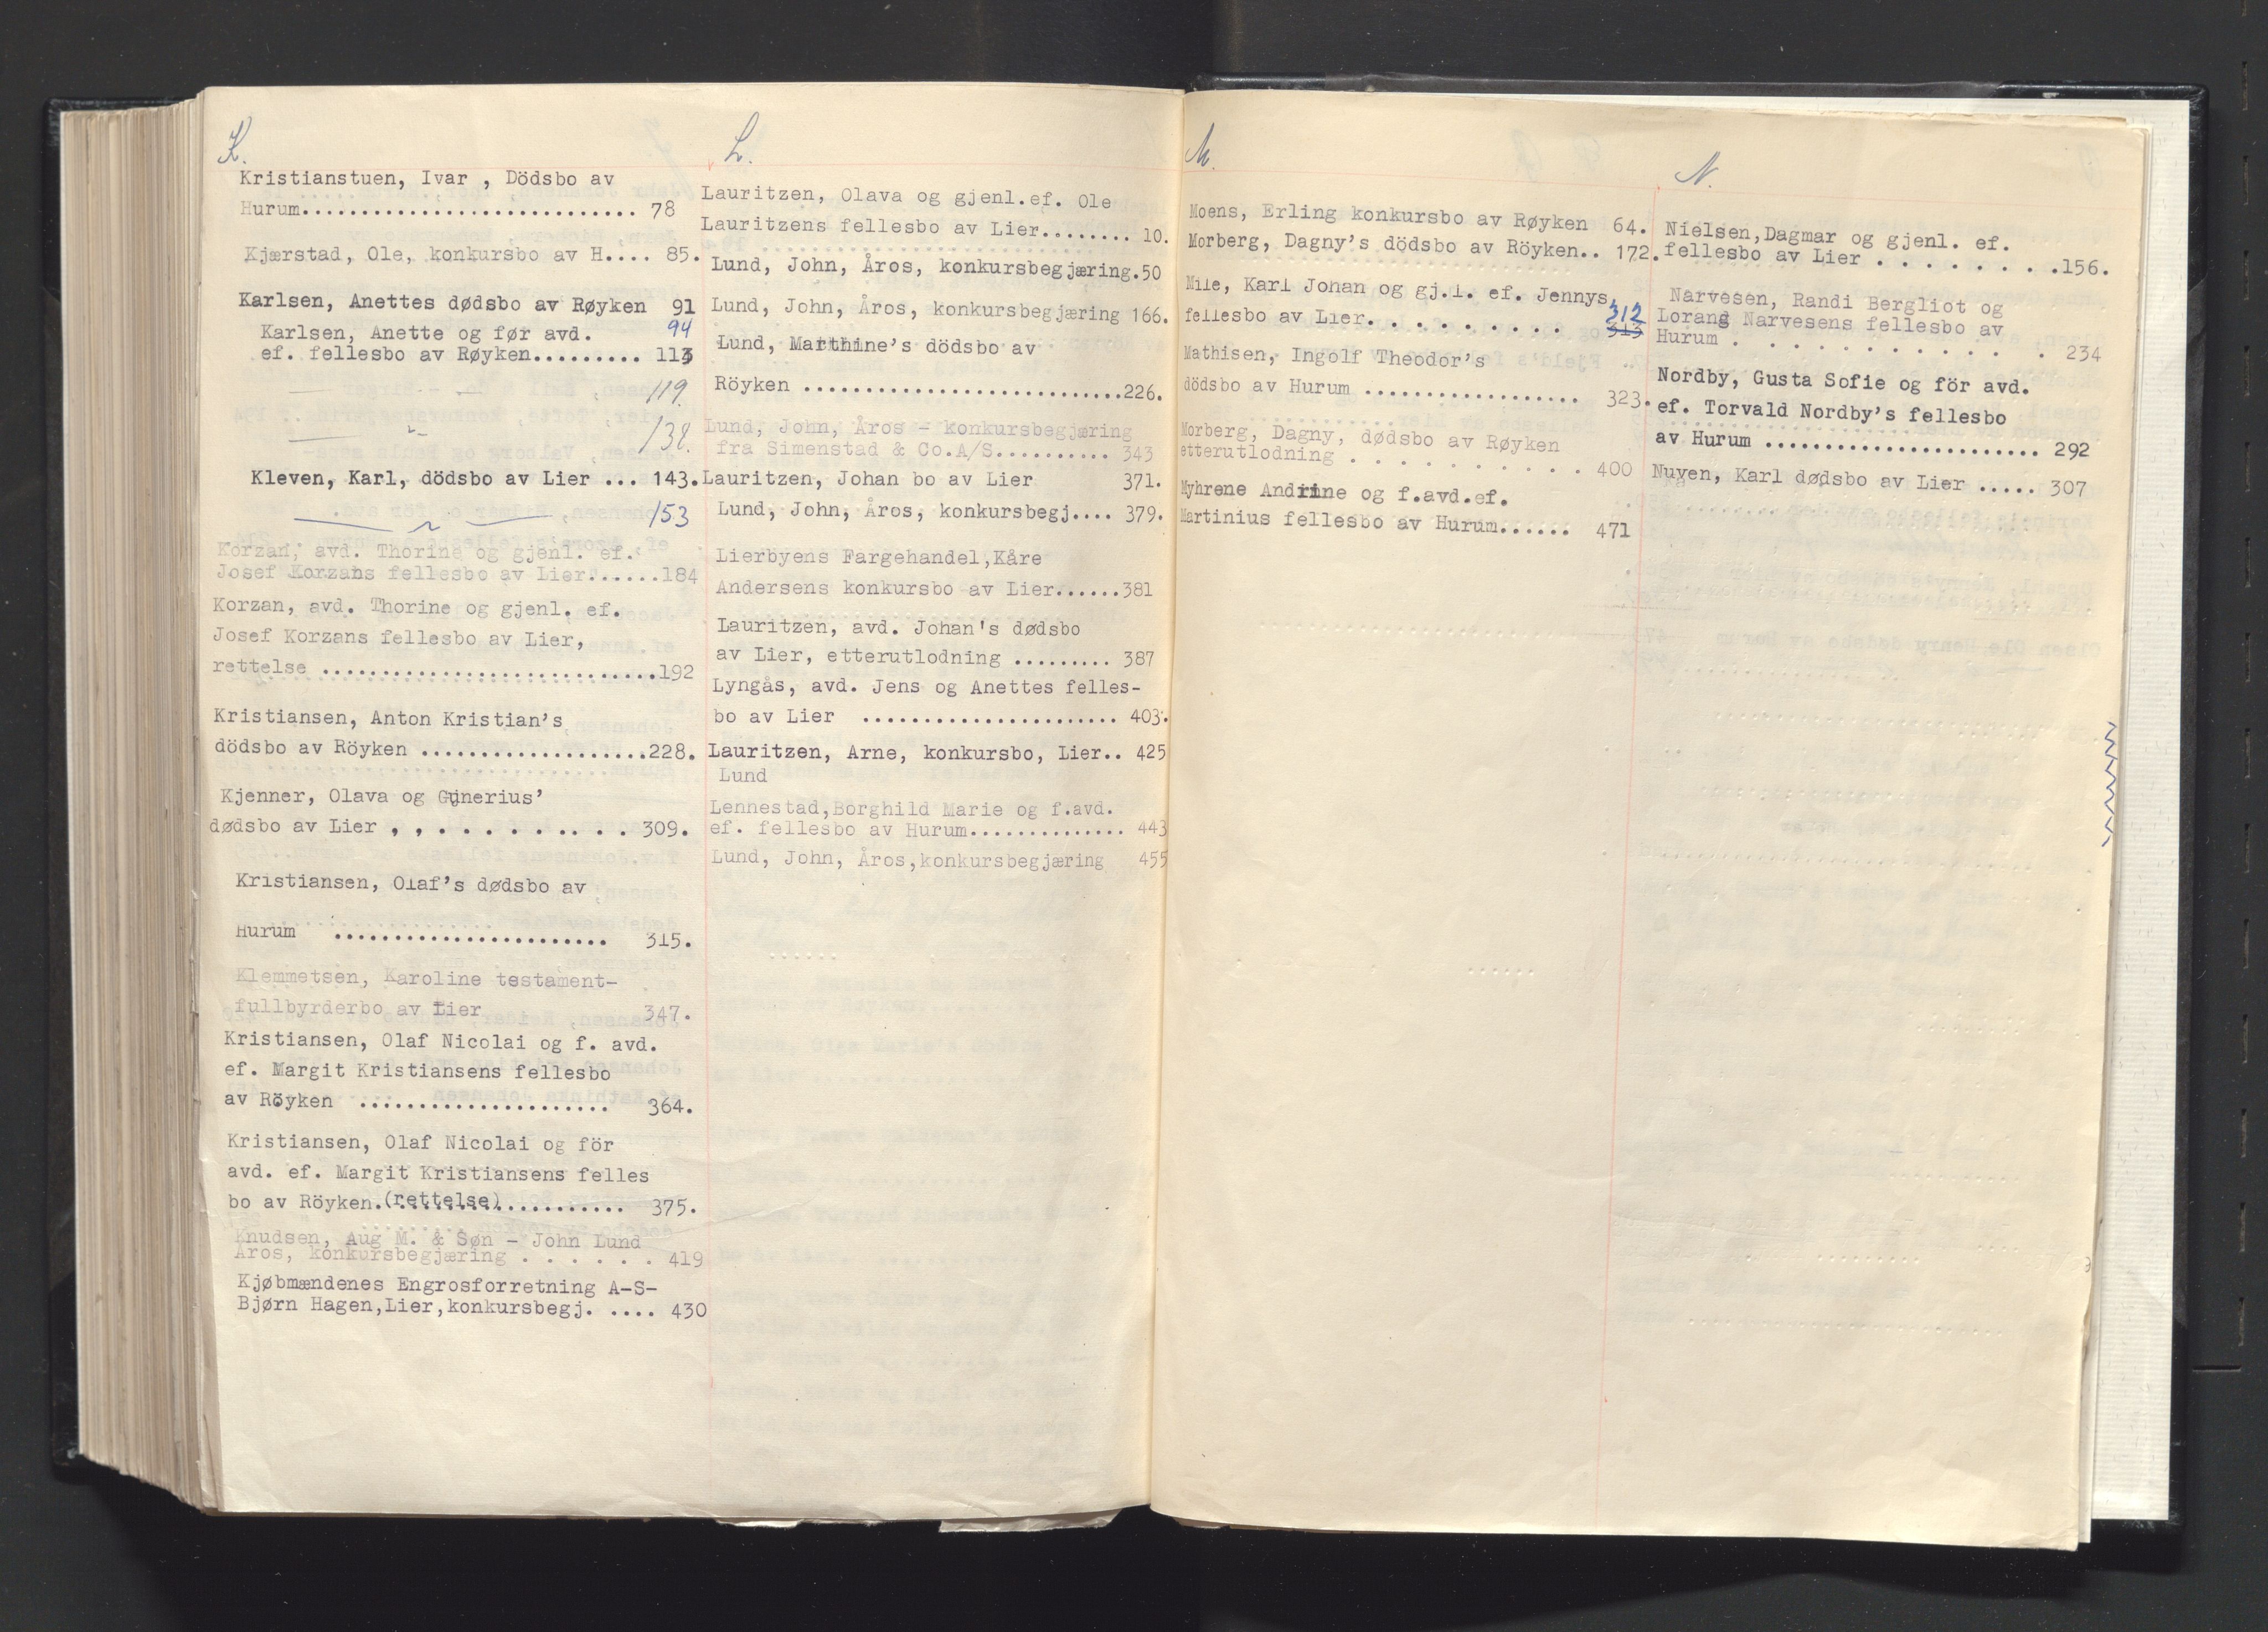 K.
Kristianstuen, Ivar , Dödsbo av
Hurum............................ 78
Kjærstad, Ole, konkursbo av H.... 85.
Karlsen, Anettes dødsbo av Røyken 91
94
Karlsen, Anette og før avd.
ef. fellesbo av Røyken......... 113
— " — 119.
— " — 138.
Kleven, Karl, dödsbo av Lier ... 143.
— " — 153
Korzan, avd. Thorine og gjenl. ef.
Josef Korzans fellesbo av Lier......184
Korzan, avd. Thorine og gjenl. ef.
Josef Korzans fellesbo av Lier,
rettelse ............................192
Kristiansen, Anton Kristian's
dödsbo av Röyken ...................228.
Kjenner, Olava og Gunerius'
dødsbo av Lier , , . . . . . . . . . . 309.
Kristiansen, Olaf's dødsbo av
Hurum ....................... 315.
Klemmetsen, Karoline testament-
fullbyrderbo av Lier 347.
Kristiansen, Olaf Nicolai og f. avd.
ef. Margit Kristiansens fellesbo
av Röyken ..................... 364.
Kristiansen, Olaf Nicolai og för
avd. ef. Margit Kristiansens felles
bo av Röyken.(rettelse)........... 375.
Knudsen, Aug M. & Søn - John Lund
Åros, konkursbegjæring . . . . . . 419
Kjøbmændenes Engrosforretning A-S-
Bjørn Hagen,Lier,konkursbegj. .... 430
L.
Lauritzen, Olava og gjenl.ef. Ole
Lauritzens fellesbo av Lier........ 10.
Lund, John, Åros, konkursbegjæring.50
Lund, John, Åros, konkursbegjæring 166.
Lund, Marthine's dödsbo av
Röyken ...........................226.
Lund, John, Åros - konkursbegjæring
fra Simenstad & Co.A/S.......... 343
Lauritzen, Johan bo av Lier 371.
Lund, John, Åros, konkursbegj.... 379.
Lierbyens Fargehandel,Kåre
Andersens konkursbo av Lier......381
Lauritzen, avd. Johan's dødsbo
av Lier, etterutlodning ......... 387
Lyngås, avd. Jens og Anettes felles-
bo av Lier ...................... 403.
Lauritzen, Arne, konkursbo, Lier.. 425
Lund
Lennestad,Borghild Marie og f.avd.
ef. fellesbo av Hurum.............. 443
Lund, John, Åros,konkursbegjæring 455
M.
Moens, Erling konkursbo av Røyken 64.
Morberg, Dagny's dödsbo av Röyken.. 172.
Mile, Karl Johan og gj.l. ef. Jennys
fellesbo av Lier. . . . . . . . . 312 313
Mathisen, Ingolf Theodor's
dödsbo av Hurum .................. 323.
Morberg, Dagny, dødsbo av Røyken
etterutlodning . . . . . . . . . . 400
Myhrene Andrine og f.avd.ef.
Martinius fellesbo av Hurum...... 471
N.
Nielsen,Dagmar og gjenl. ef.
fellesbo av Lier . . . . . . . .156.
Narvesen, Randi Bergliot og
Lorang Narvesens fellesbo av
Hurum . . . . . . . . . . 234
Nordby, Gusta Sofie og för avd.
ef. Torvald Nordby's fellesbo
av Hurum ....................... 292
Nuyen, Karl dødsbo av Lier ..... 307